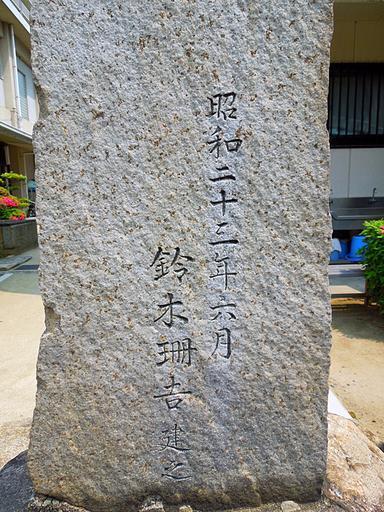 昭和二十三年六月
鈴木珊吉建之